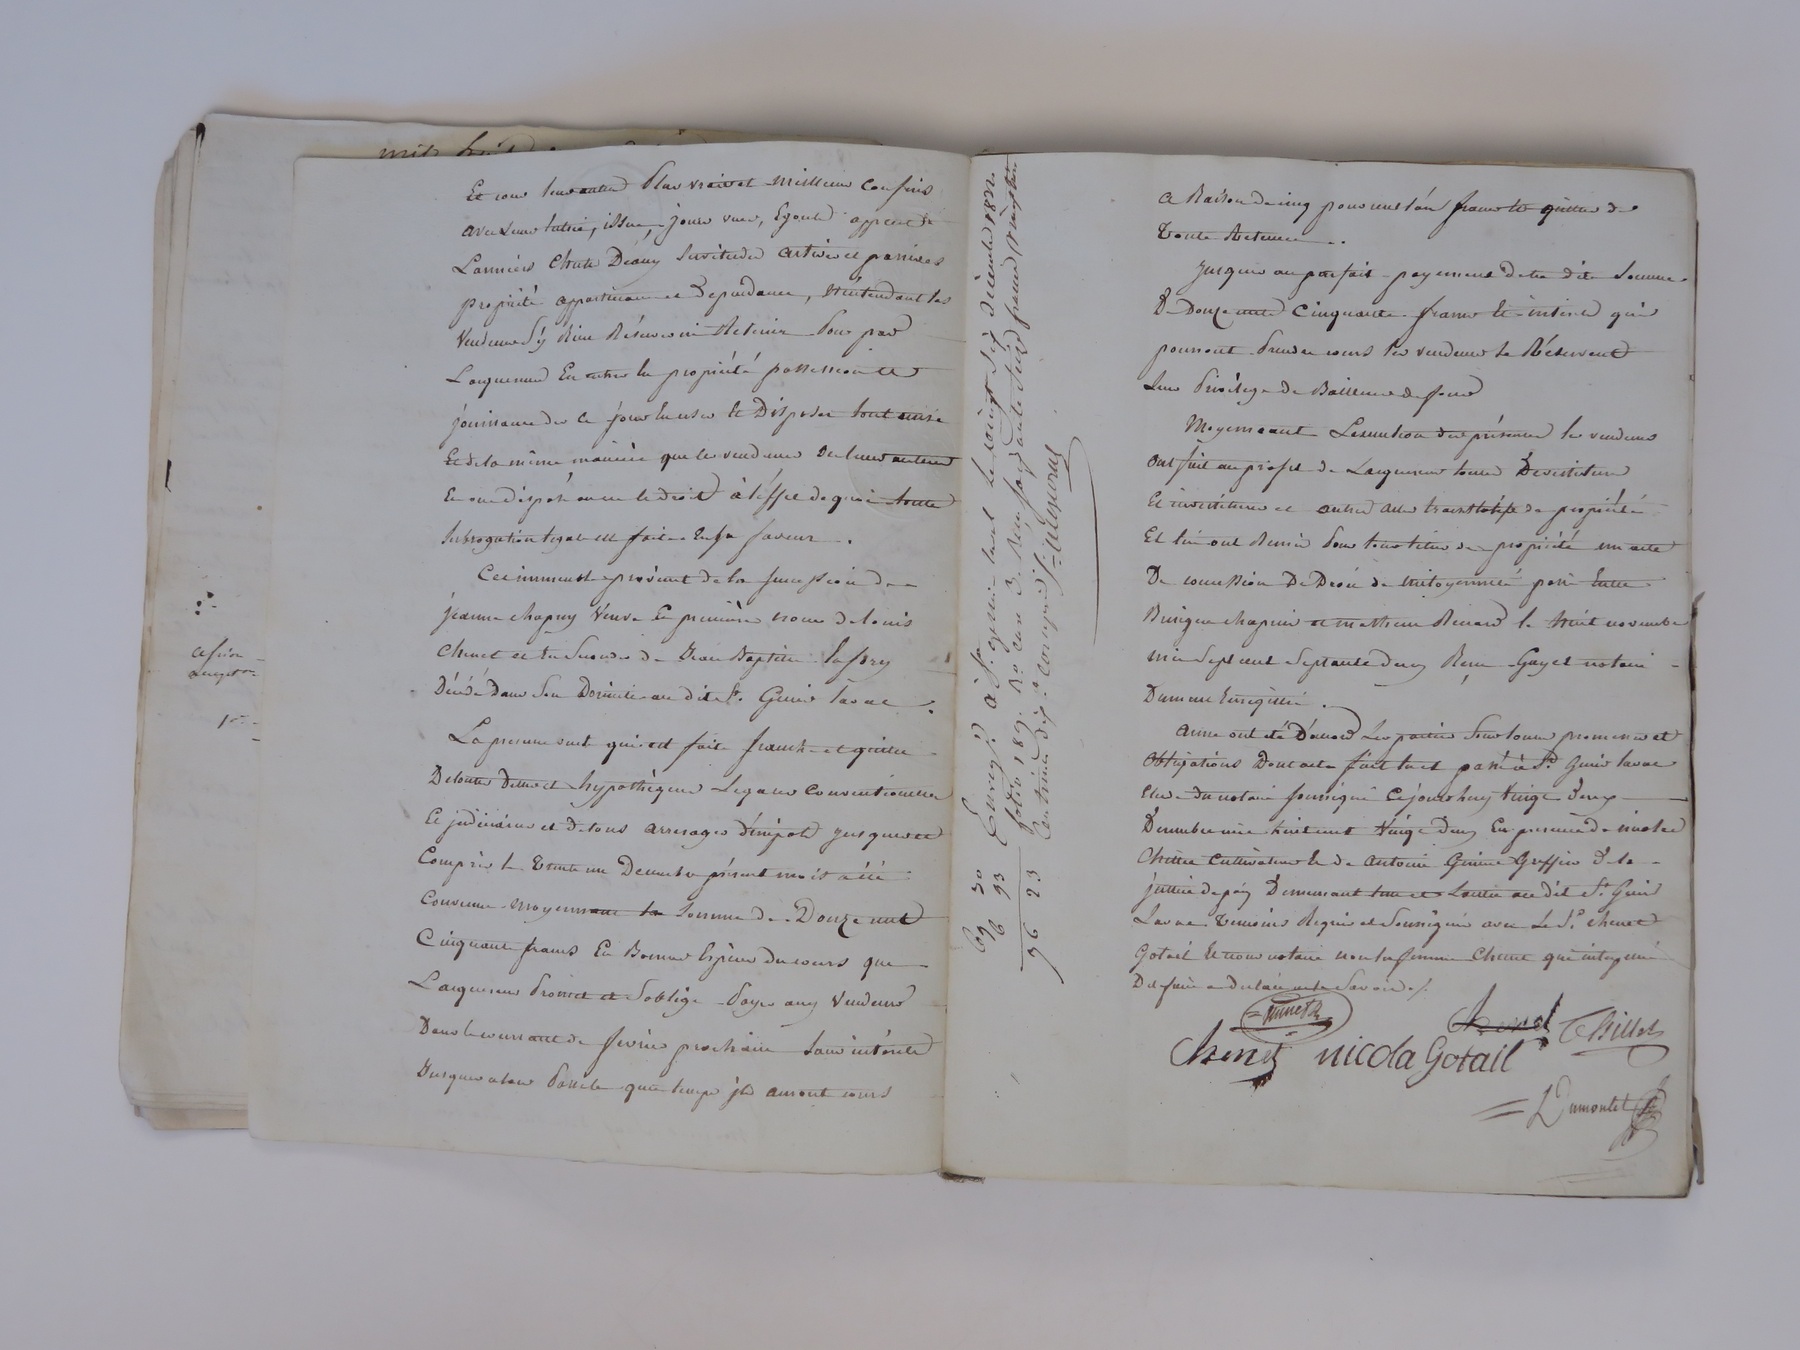 Et sous leurs autres plus vrais et meilleurs confins
avec leurs entrée, issue, jours vues, Egouts appent
Larmiers chute D'eaux servitudes actives et passives
propriété appartenance et Dependance, n'entendant les
Vendeurs s'y Rien Réserver ni Retenir Pour par
L'acquereur En entrer la propriété possession et
jouissance des ce jour En user et Disposer tout ainsi
Et de la même manière que les vendeurs de leurs auteurs
En ont disposé ou eu le droit à l'effet de quoi toute
subrogation légale est faite En sa faveur.
Cet immeuble provient de la succession de
jeanne chapuy Veuve En premières noces de Louis
Chenet et En Secondes de Jean Baptiste
Décédé Dans Son Domicile au dit St. Genis laval.
La presente vente qui est faite franche et quitte
De toutes Dettes et hypothèques Légales Conventionnelles
Et judiciaires et de tous arrerages d'impots jusques et
Compris le trente un Decembre présent mois a été
Convenue moyennant la somme de Douze cent
Cinquante francs En Bonnes Espèces du cours que
L'acquereur Promet et s'oblige Payer aux Vendeurs
Dans le courant de fevrier prochain Sans intérêts
Jusques alors Passé le quel temps ils auront cours
Enregt. à St. genis laval le vingt six décembre 1822.
folio 189. Ro. case 3. Reçu soixante neuf francs vingt
Centimes dixe. compris
69 30
6 93
76 23
a Raison de cinq pour cent l'an francs et quittes de
toute Retenue.
Jusques au parfait payement de la dite Somme
De Douze cent Cinquante francs et intérêts qui
pourront Prendre cours les vendeurs se Réservent
Leur Privilége de Bailleurs de fonds
Moyennant L'execution des présentes les vendeurs
Ont fait au profit de L'acquereur toutes Devestiture
Et investiture et autres actes translatifs de propriété
Et lui ont Remis Pour tous titres de propriété un acte
De concession De Droit de mitoyenneté passé Entre
Benigne chapuis et mathieu Renard le huit novembre
mil Sept cent Septante deux Reçu Gayet notaire
Dument Enregistré.
Ainsi ont été D'accord Les parties Sous toutes promesses et
Obligations Dont acte fait lu et passé à St. Genis laval
Etude du notaire soussigné Cejourdhuy Vingt deux
Decembre mil huit cent Vingt Deux En presence de nicolas
Chillet Cultivateur et de antoine Greffier de la
justice de paix Demeurant tous et L'autre au dit St. Genis
Laval temoins Requis et Soussignés avec Le Sr. Chenet
Gotail Et nous notaire non la femme Chenet qui interpellée
De le faire a declaré ne le Savoir./.
Chenet Chillet
Chenet nicola Gotail
Dumontet